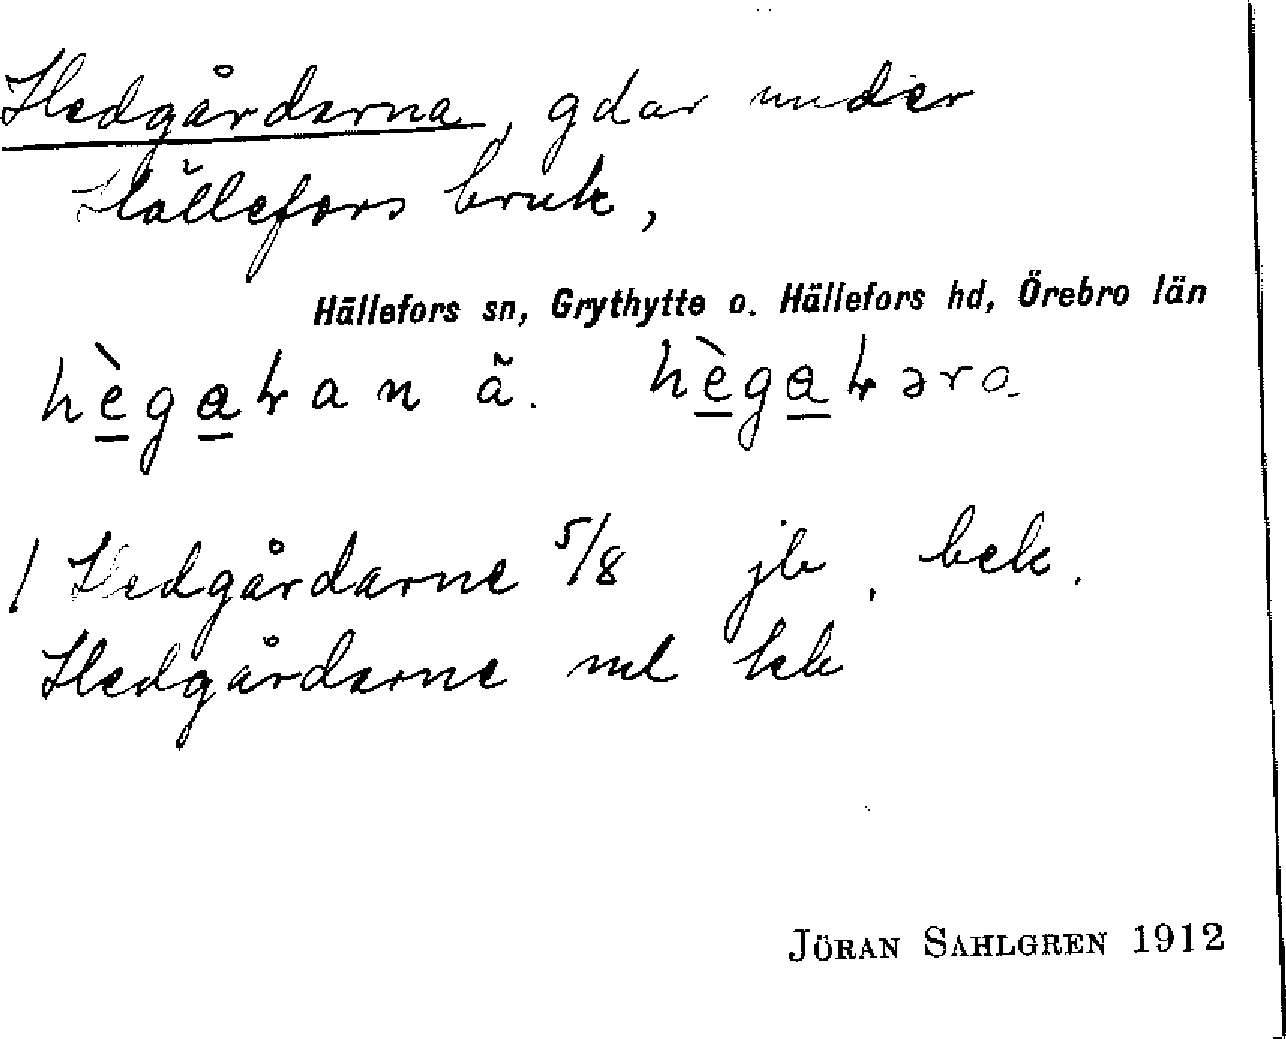 Hedgårdarna, gdar under
Hällefors bruk,
Hällefors sn, Grythytte o. Hällefors hd, Örebro län
1 Hedgårdarne 5/8 jb, bek.
Hedgårdarne ml bek
JÖRAN SAHLGREN 1912